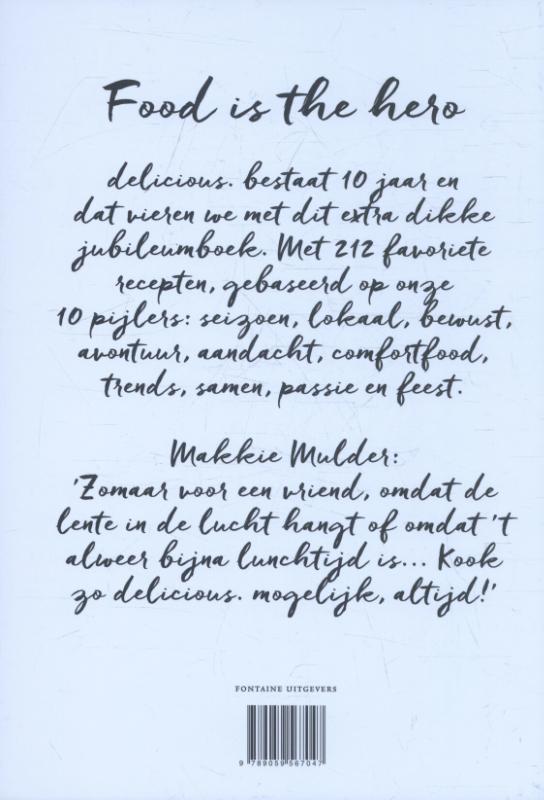 Food is the hero
delicious. bestaat 10 jaar en
dat vieren we met dit extra dikke
jubileumboek. Met 212 favoriete
recepten, gebaseerd op onze
10 pijlers: seizoen, lokaal, bewust,
avontuur, aandacht, comfortfood,
trends, samen, passie en feest.
Makkie Mulder:
'Zomaar voor een vriend, omdat de
lente in de lucht hangt of omdat 't
alweer bijna lunchtijd is... Kook
zo delicious. mogelijk, altijd!'
FONTAINE UITGEVERS
9 789059 567047